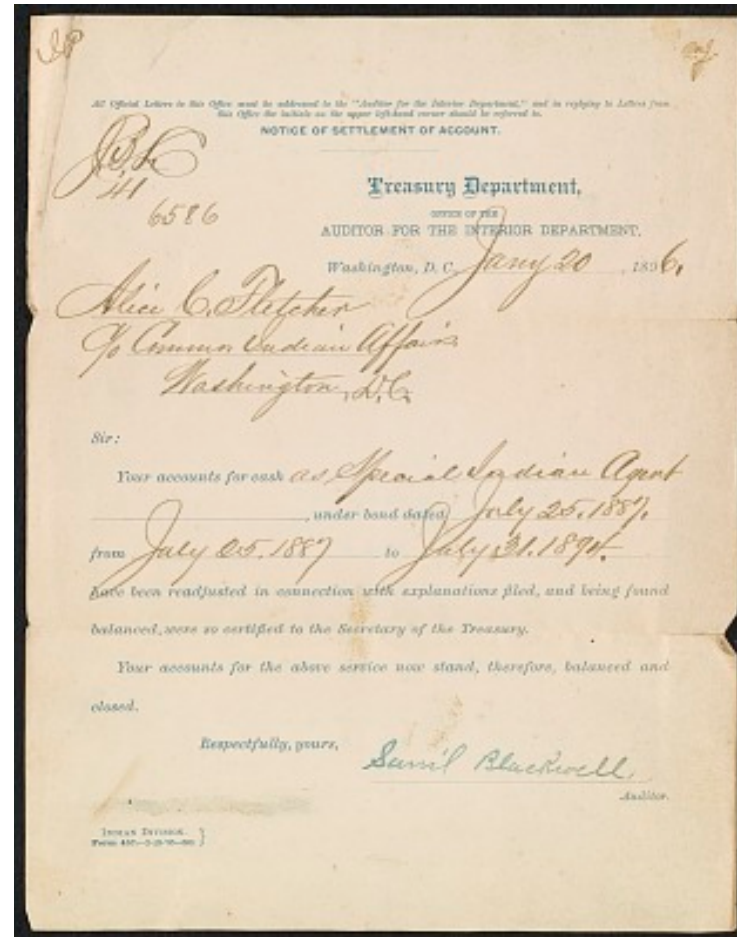 All Official Letters to this Office must be addressed to the "Auditor for the Interior Department," and in replying to Letters from
this Office the initials on the upper left-hand corner should be referred to.
NOTICE OF SETTLEMENT OF ACCOUNT.
41
6586
Treasury Department,
OFFICE OF THE
AUDITOR FOR THE INTERIOR DEPARTMENT,
Washington, D. C. Jany 20, 1896.
Alice C. Fletcher
c/o Commr Indian Affairs
Washington, D.C.
Sir:
Your accounts for cash as Special Indian Agent
, under bond dated July 25, 1887,
from July 25, 1887 to July 31, 1894.
have been readjusted in connection with explanations filed, and being found
balanced, were so certified to the Secretary of the Treasury.
Your accounts for the above service now stand, therefore, balanced and
closed.
Respectfully, yours,
Saml Blackwell
Auditor.
INDIAN DIVISION.